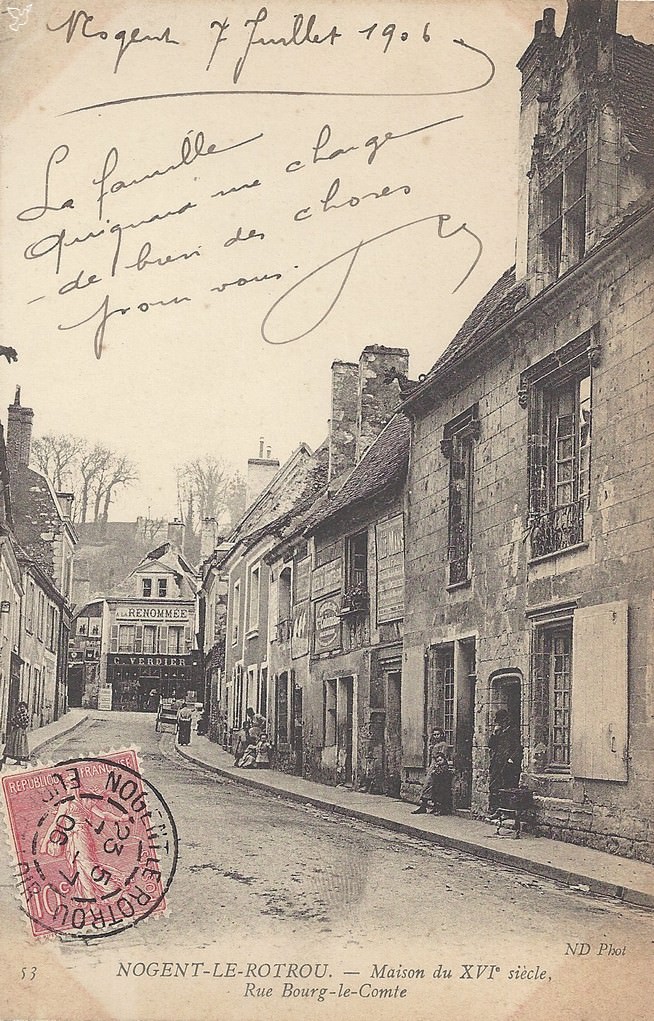 Nogent 7 Juillet 1906
La famille
Quignard me charge
de bien des choses
pour vous.
A LA RENOMMÉE
C. VERDIER
REPUBLIQUE FRANÇAISE
10c
NOGENT-LE-ROTROU
23 5
7
06
EURE
ND Phot
53 NOGENT-LE-ROTROU. — Maison du XVIe siècle,
Rue Bourg-le-Comte